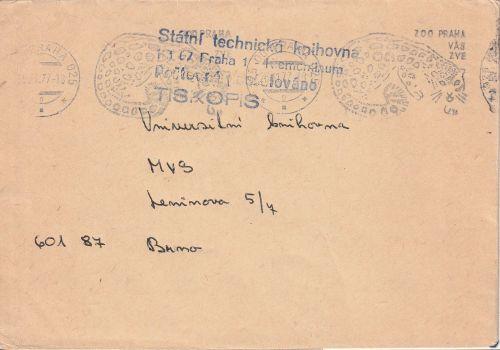 Státní technická knihovna
113 07 Praha 1 - Klementinum
TISKOPIS
ZOO PRAHA
VÁS
ZVE
Universitní knihovna
MVS
Leninova 5/7
601 87 Brno